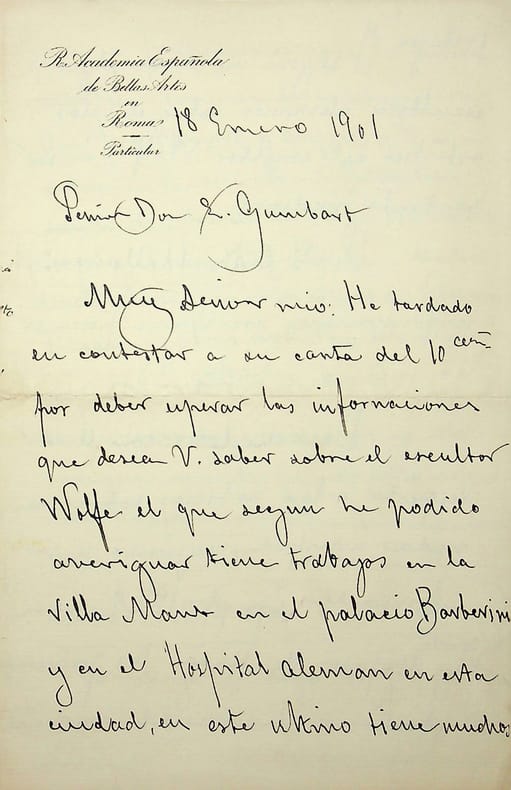 R. Academia Española
de Bellas Artes
en
Roma
Particular
18 Enero 1901
Señor Don E. Gumbart
Muy Señor mio: He tardado
en contestar a su carta del 10 cem̃
por deber esperar las informaciones
que desea V. saber sobre el escultor
Wolfe el que segun he podido
averiguar tiene trabajos en la
Villa en el palacio Barberini
y en el Hospital aleman en esta
ciudad, en este ultimo tiene muchos